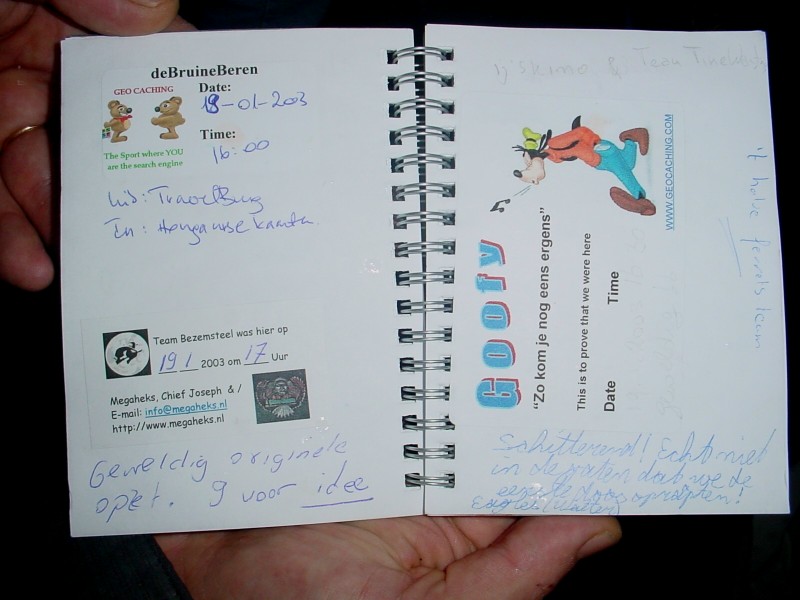 deBruineBeren
GEO CACHING
Date:
18-01-2003
Time:
16:00
The Sport where YOU
are the search engine
Uit: TravelBug
In: Hongaarse kaarten
Team Bezemsteel was hier op
19 1 2003 om 17 Uur
Megaheks, Chief Joseph & /
E-mail: info@megaheks.nl
http://www.megaheks.nl
Geweldig originele
opzet. 9 voor idee
& Team
Goofy
"Zo kom je nog eens ergens"
This is to prove that we were here
Date Time
WWW.GEOCACHING.COM
't halve ferrets team
Schitterend! Echt niet
in de gaten dat we de
eerste doos oppropten!